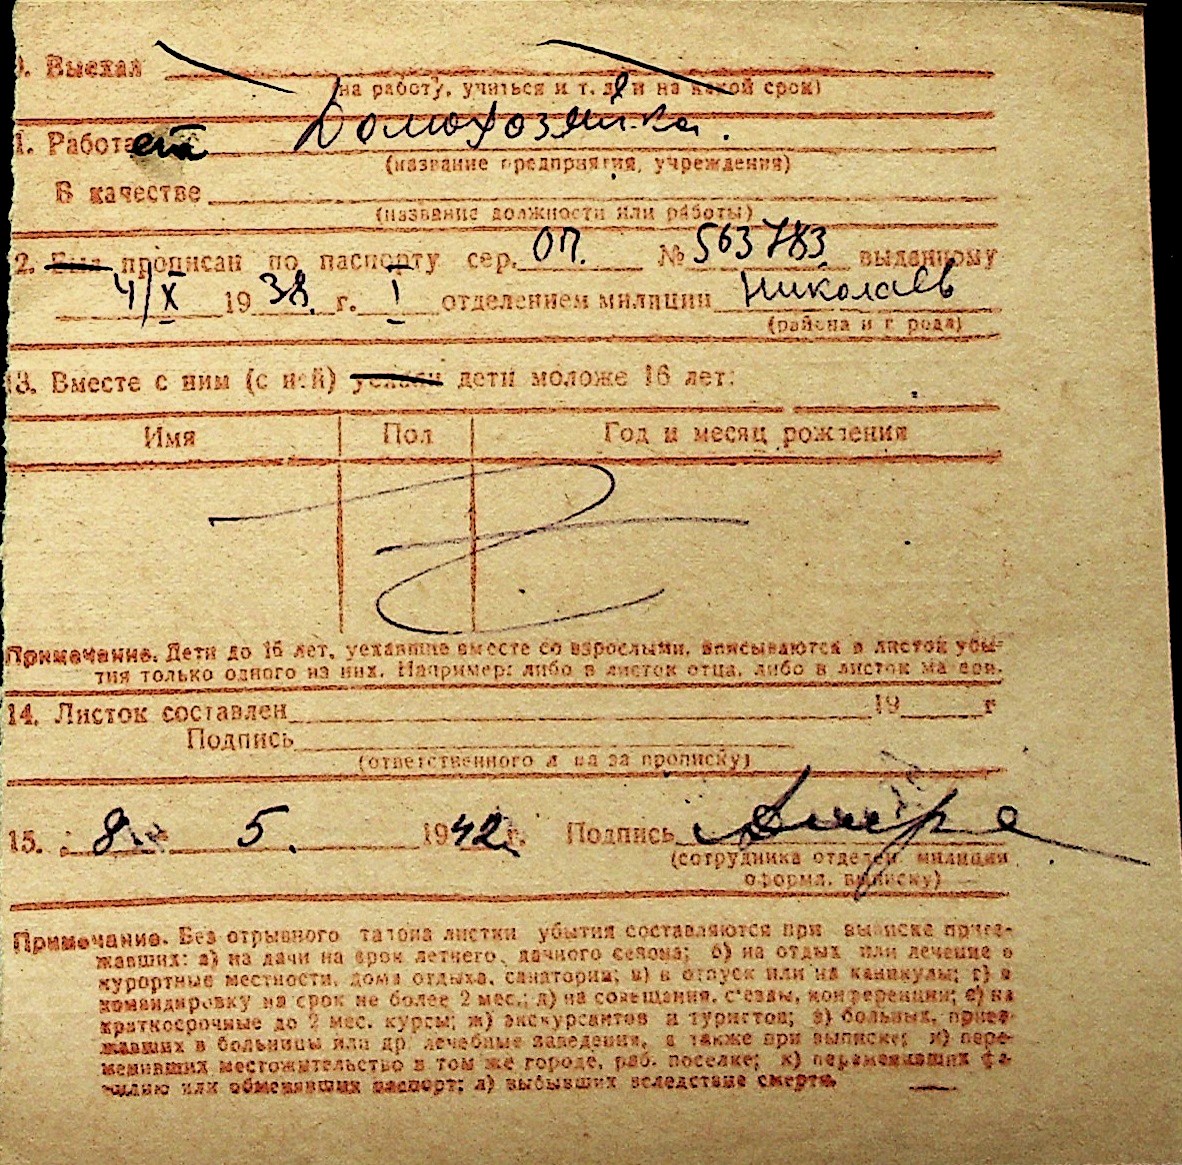 0. Выехал
(на работу, учиться и т. д. и на какой срок)
1. Работает Домохозяйка.
(название предприятия, учреждения)
В качестве
(название должности или работы)
2. Был прописан по паспорту сер. ОП. № 563783 выданному
4/X 1938 г. I отделением милиции Николаев
(района и города)
13. Вместе с ним (с ней) уехали дети моложе 16 лет:
Имя Пол Год и месяц рождения
Примечание. Дети до 16 лет, уехавшие вместе со взрослыми, вписываются в листок убы-
тия только одного из них. Например: либо в листок отца, либо в листок матери.
14. Листок составлен 19 г
Подпись
(ответственного лица за прописку)
15. 8 5. 1942 г. Подпись
(сотрудника отделен. милиции
оформл. выписку)
Примечание. Без отрывного талона листки убытия составляются при выписке приез-
жавших: а) на дачи на срок летнего, дачного сезона; б) на отдых или лечение в
курортные местности, дома отдыха, санатории; в) в отпуск или на каникулы; г) в
командировку на срок не более 2 мес.; д) на совещания, съезды, конференции; е) на
краткосрочные до 2 мес. курсы; ж) экскурсантов и туристов; з) больных, приез-
жавших в больницы или др. лечебные заведения, а также при выписке; и) пере-
менивших местожительство в том же городе, раб. поселке; к) переменивших фа-
милию или обменявших паспорт; л) выбывших вследствие смерти.